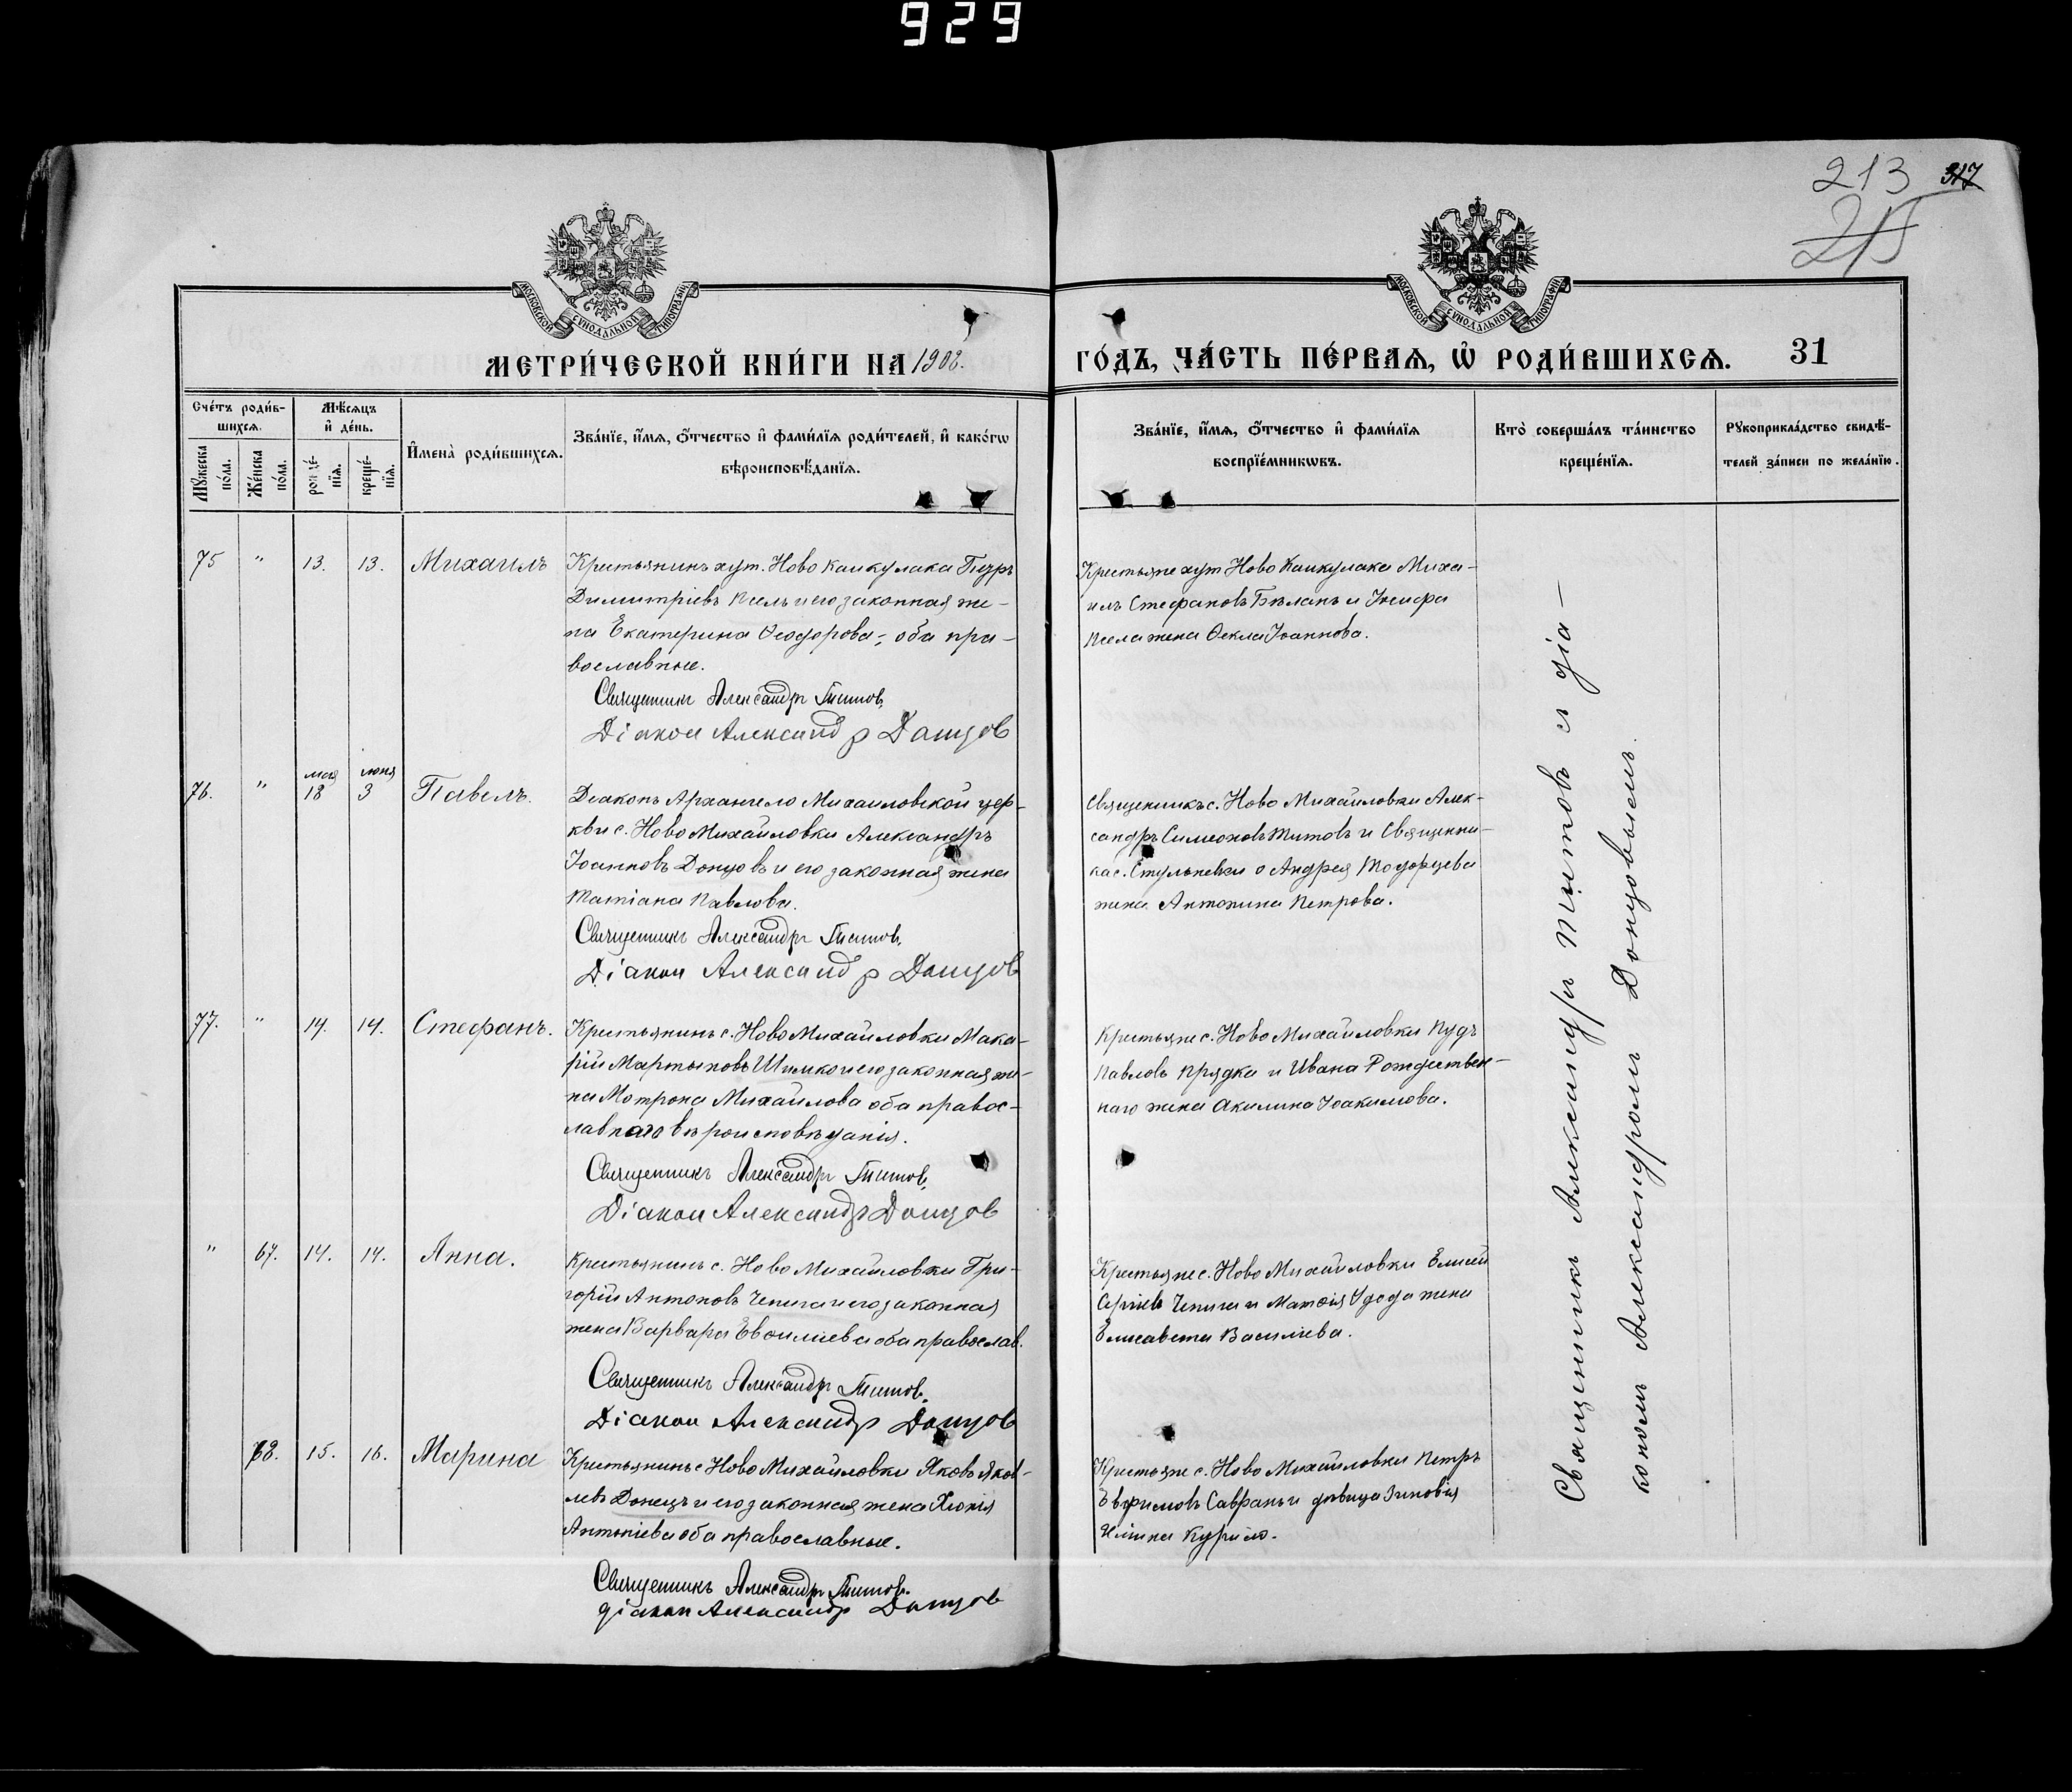 929
213 317
215
МОСКОВСКОЙ СУНОДАЛЬНОЙ ТИПОГРАФІИ
МОСКОВСКОЙ СУНОДАЛЬНОЙ ТИПОГРАФІИ
МЕТРИ́ЧЕСКОЙ КНИ́ГИ НА 1908. ГО́ДЪ, ЧА́СТЬ ПЕ́РВАѦ, Ѽ РОДИ́ВШИХСѦ. 31
Сче́тъ роди́в-
шихсѧ.
Мꙋ́жеска по́ла.
Же́нска по́ла.
Мѣ́сѧцъ
и҆ де́нь.
рожде́-нїѧ.
креще́-нїѧ.
И҆мена̀ роди́вшихсѧ.
Зва́нїе, и҆́мѧ, ѻ҆́тчество и҆ фами́лїѧ роди́телей, и҆ како́гѡ
вѣроисповѣ́данїѧ.
Зва́нїе, и҆́мѧ, ѻ҆́тчество и҆ фами́лїѧ
воспрїе́мникѡвъ.
Кто̀ соверша́лъ та́инство
креще́нїѧ.
Рꙋкоприкла́дство свидѣ́-
телей за́писи по жела́нїю.
75 " 13. 13. Михаилъ
Крестьянинъ хут. Ново Канкулака Петръ
Димитріевъ Пселъ и его законная же-
на Екатерина Ѳеодорова, оба пра-
вославные.
Священникъ Александръ Титов,
Діакон Александр Донцов
Крестьяне хут Ново Канкулака Миха-
илъ Стефановъ Бѣланъ и Іосифа
Псела жена Ѳекла Іоаннова.
76. " мая 18 іюня 3 Павелъ.
Діаконъ Архангело Михаиловской цер-
кви с. Ново Михайловки Александръ
Іоанновъ Донцовъ и его законная жена
Татіана Павлова.
Священникъ Александръ Титов,
Діакон Александр Донцов
Священникъ с. Ново Михайловки Алек-
сандръ Симеоновъ Титовъ и Священни-
ка с. Стульневки о Андрея Тодорцева
жена Антонина Петрова.
77. " 14. 14. Стефанъ.
Крестьянинъ с. Ново Михайловки Мака-
рій Мартыновъ Шимко и его законная же-
на Мотрона Михайлова оба правос-
лавнаго вѣроисповѣданія.
Священникъ Александръ Титов,
Діакон Александр Донцов
Крестьяне с. Ново Михайловки Іудъ
Павловъ Прядка и Ивана Рождествен-
наго жена Акилина Іоакимова.
" 67. 14. 14. Анна.
Крестьянинъ с. Ново Михайловки Гри-
горій Антоновъ Чепига и его законная
жена Варвара оба православ.
Священникъ Александръ Титов,
Діакон Александр Донцов
Крестьяне с. Ново Михайловки Елисей
Сергіевъ Чепига и Матѳія Удода жена
Елисавета Василіева.
68. 15. 16. Марина
Крестьянинъ с Ново Михайловки Яковъ Яков-
левъ Донецъ и его законная жена Хіонія
Антоніева оба православные.
Священникъ Александръ Титов.
діакон Александр Донцов
Крестьяне с. Ново Михайловки Петръ
Евфимовъ Савранъ и дѣвица Зиновія
Курило.
Священникъ Александръ Титовъ и діа-
кономъ Александромъ Донцовымъ.